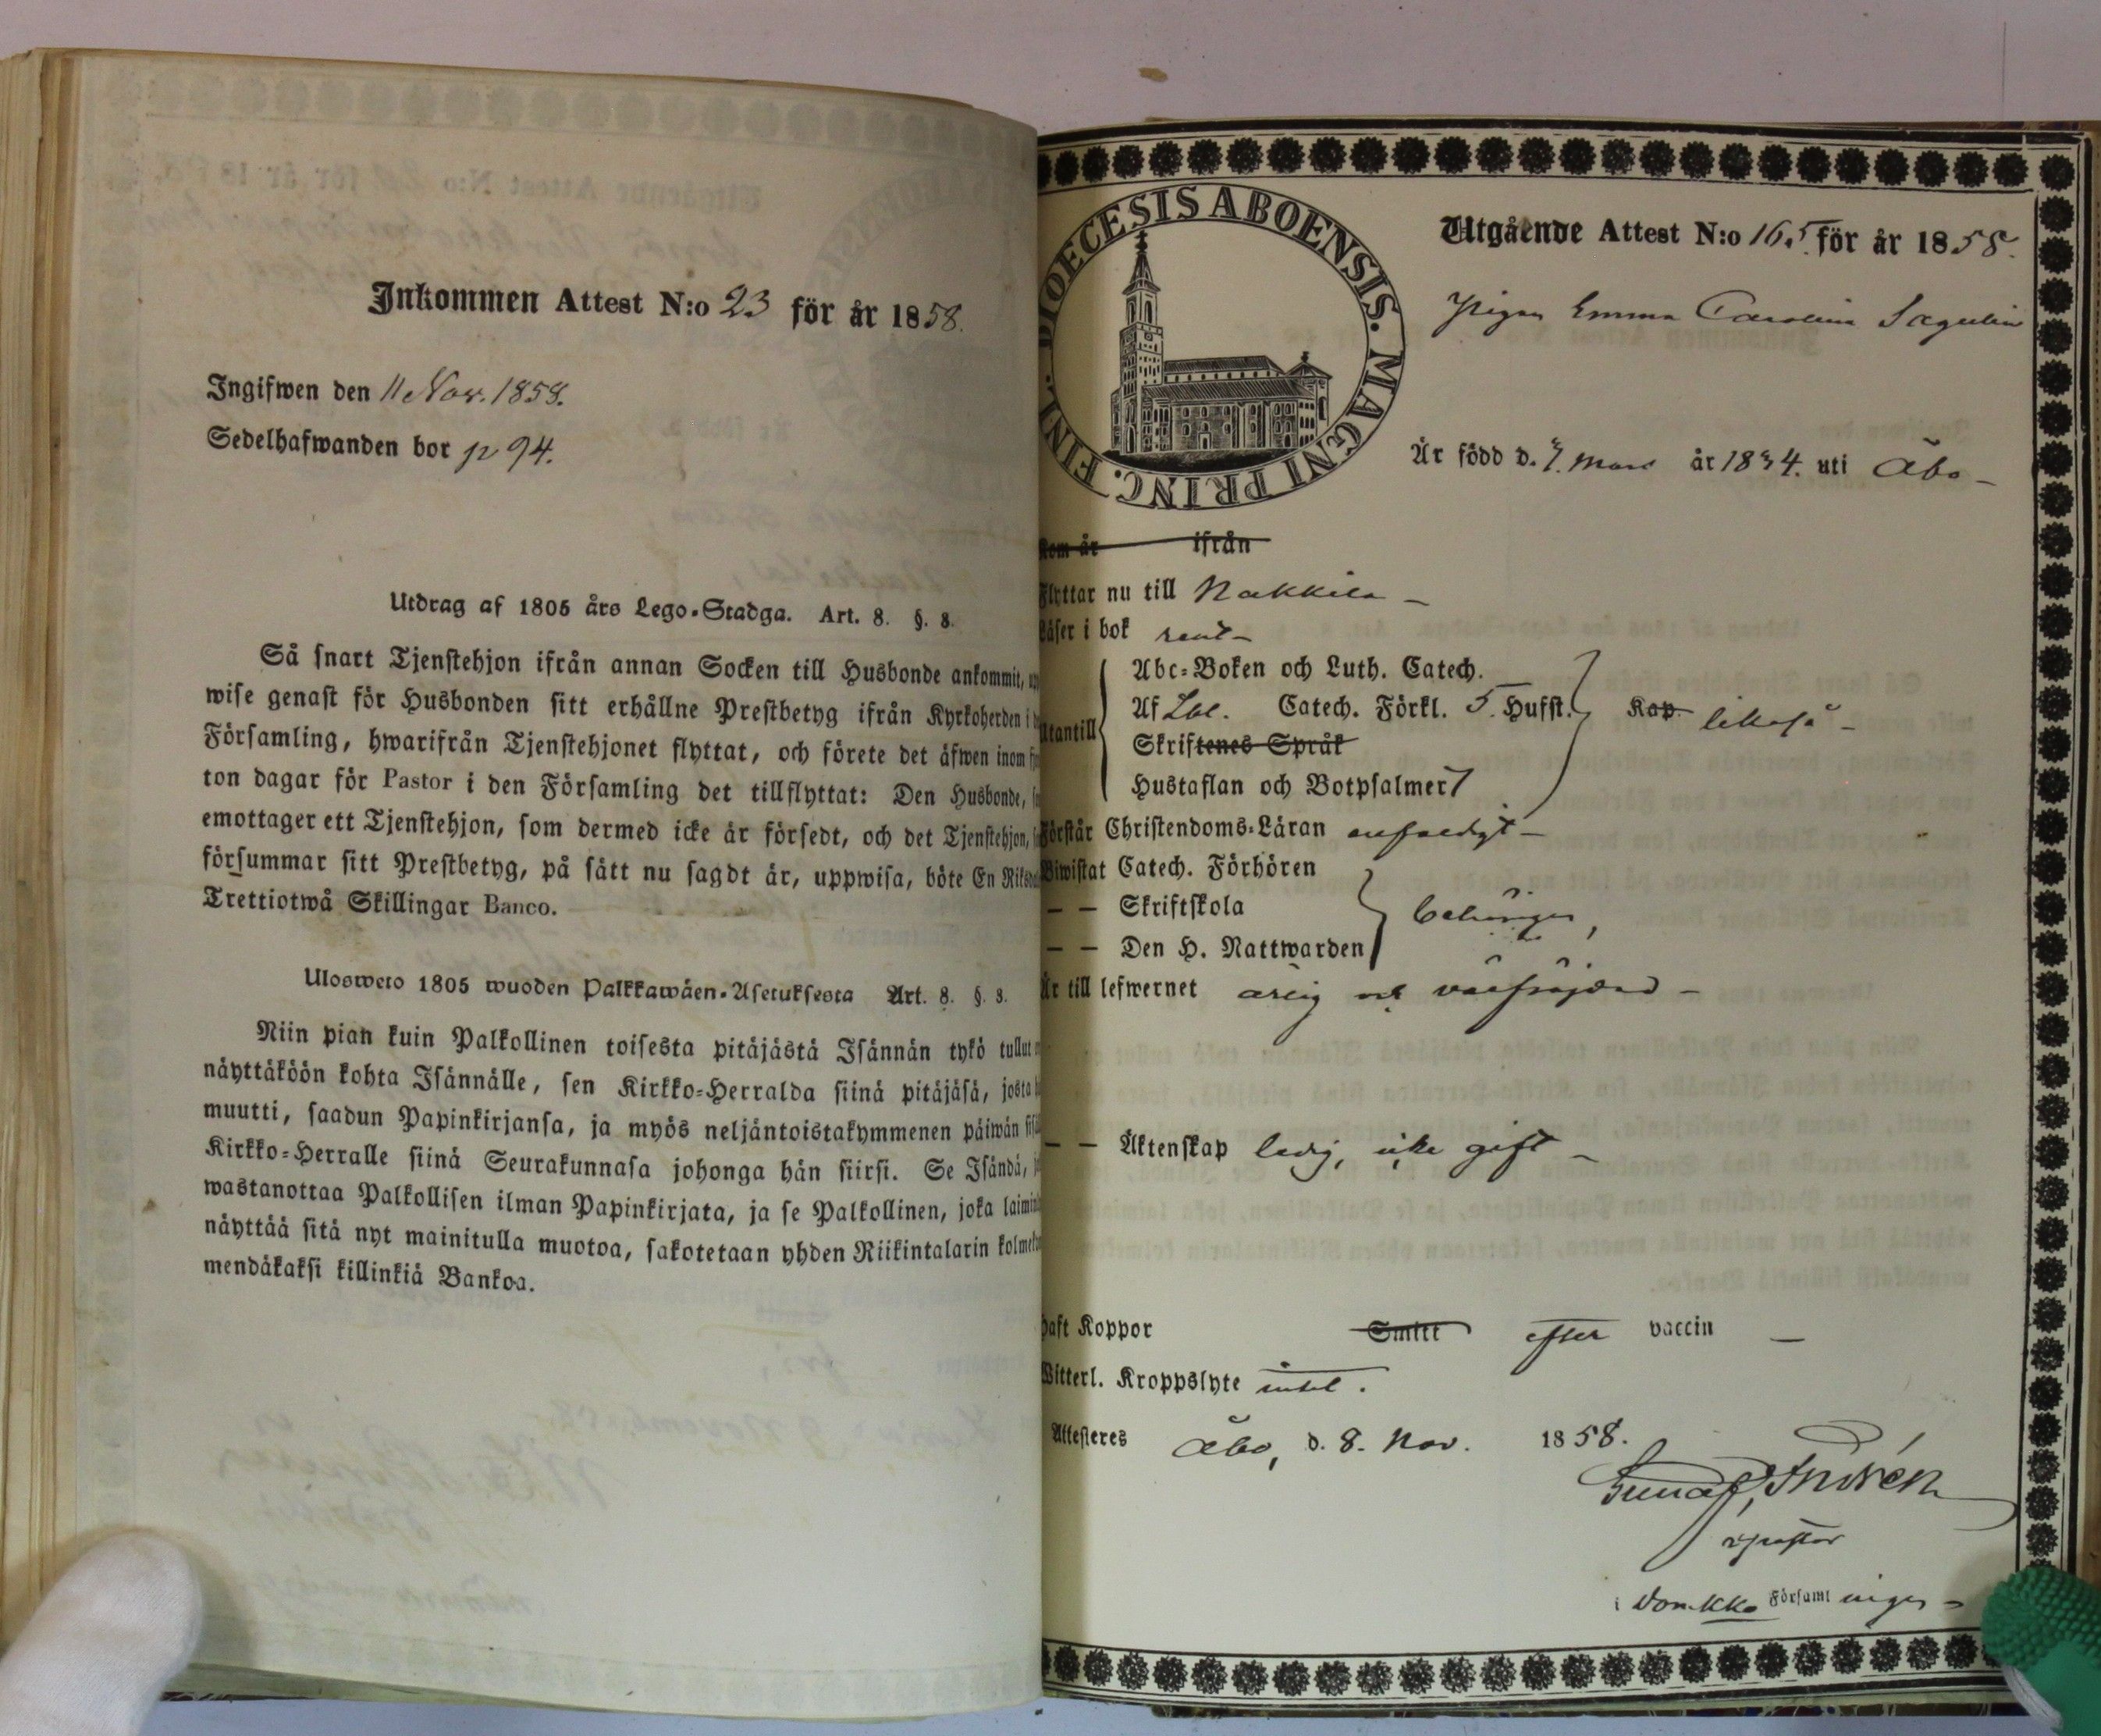 Inkommen Attest N:o 23 för år 1858.
Ingifwen den 11 Nov. 1858.
Sedelhafwanden bor p 94.
Utdrag af 1805 års Lego-Stadga. Art. 8. §. 8.
Så snart Tjenstehjon ifrån annan Socken till Husbonde ankommit,
wise genast för Husbonden sitt erhållne Prestbetyg ifrån Kyrkoherden i
Församling, hwarifrån Tjenstehjonet flyttat, och förete det äfwen inom
ton dagar för Pastor i den Församling det tillflyttat: Den Husbonde,
emottager ett Tjenstehjon, som dermed icke är försedt, och det Tjenstehjon,
försummar sitt Prestbetyg, på sätt nu sagdt är, uppwisa, böte En
Trettiotwå Skillingar Banco.
Ulosweto 1805 wuoden Palkkawäen-Asetuksesta Art. 8. §. 8.
Niin pian kuin Palkollinen toisesta pitäjästä Isännän tykö tullut
näyttäköön kohta Isännälle, sen Kirkko-Herralda siinä pitäjäsä, josta
muutti, saadun Papinkirjansa, ja myös neljäntoistakymmenen päiwän
Kirkko-Herralle siinä Seurakunnasa johonga hän siirsi. Se Isändä,
wastanottaa Palkollisen ilman Papinkirjata, ja se Palkollinen, joka
näyttää sitä nyt mainitulla muotoa, sakotetaan yhden Riikintalarin
mendäkaksi killinkiä Bankoa.
DIOECESIS ABOENSIS. MAGNI PRINC. FINL.
Utgående Attest N:o 165. för år 1858.
Pigan Emma Carolina Sagulin
Är född d. 7. Mars år 1834. uti Åbo
Kom år ifrån
Flyttar nu till Nakkila
Läser i bok rent
Abc-Boken och Luth. Catech.
Utantill Af Catech. Förkl. 5. Hufst. Kap likaså
Skriftenes Språk
Hustaflan och Botpsalmer
Förstår Christendoms-Läran enfaldigt
Biwistat Catech. Förhören
— — Skriftskola behörigen,
— — Den H. Nattwarden
Är till lefwernet ärlig och välfrejdad
— — Äktenskap ledig, icke gift
Haft Koppor Smitt efter vaccin
Witterl. Kroppslyte intet.
Attesteres Åbo, d. 8. Nov. 1858.
i Domkko Församlingen